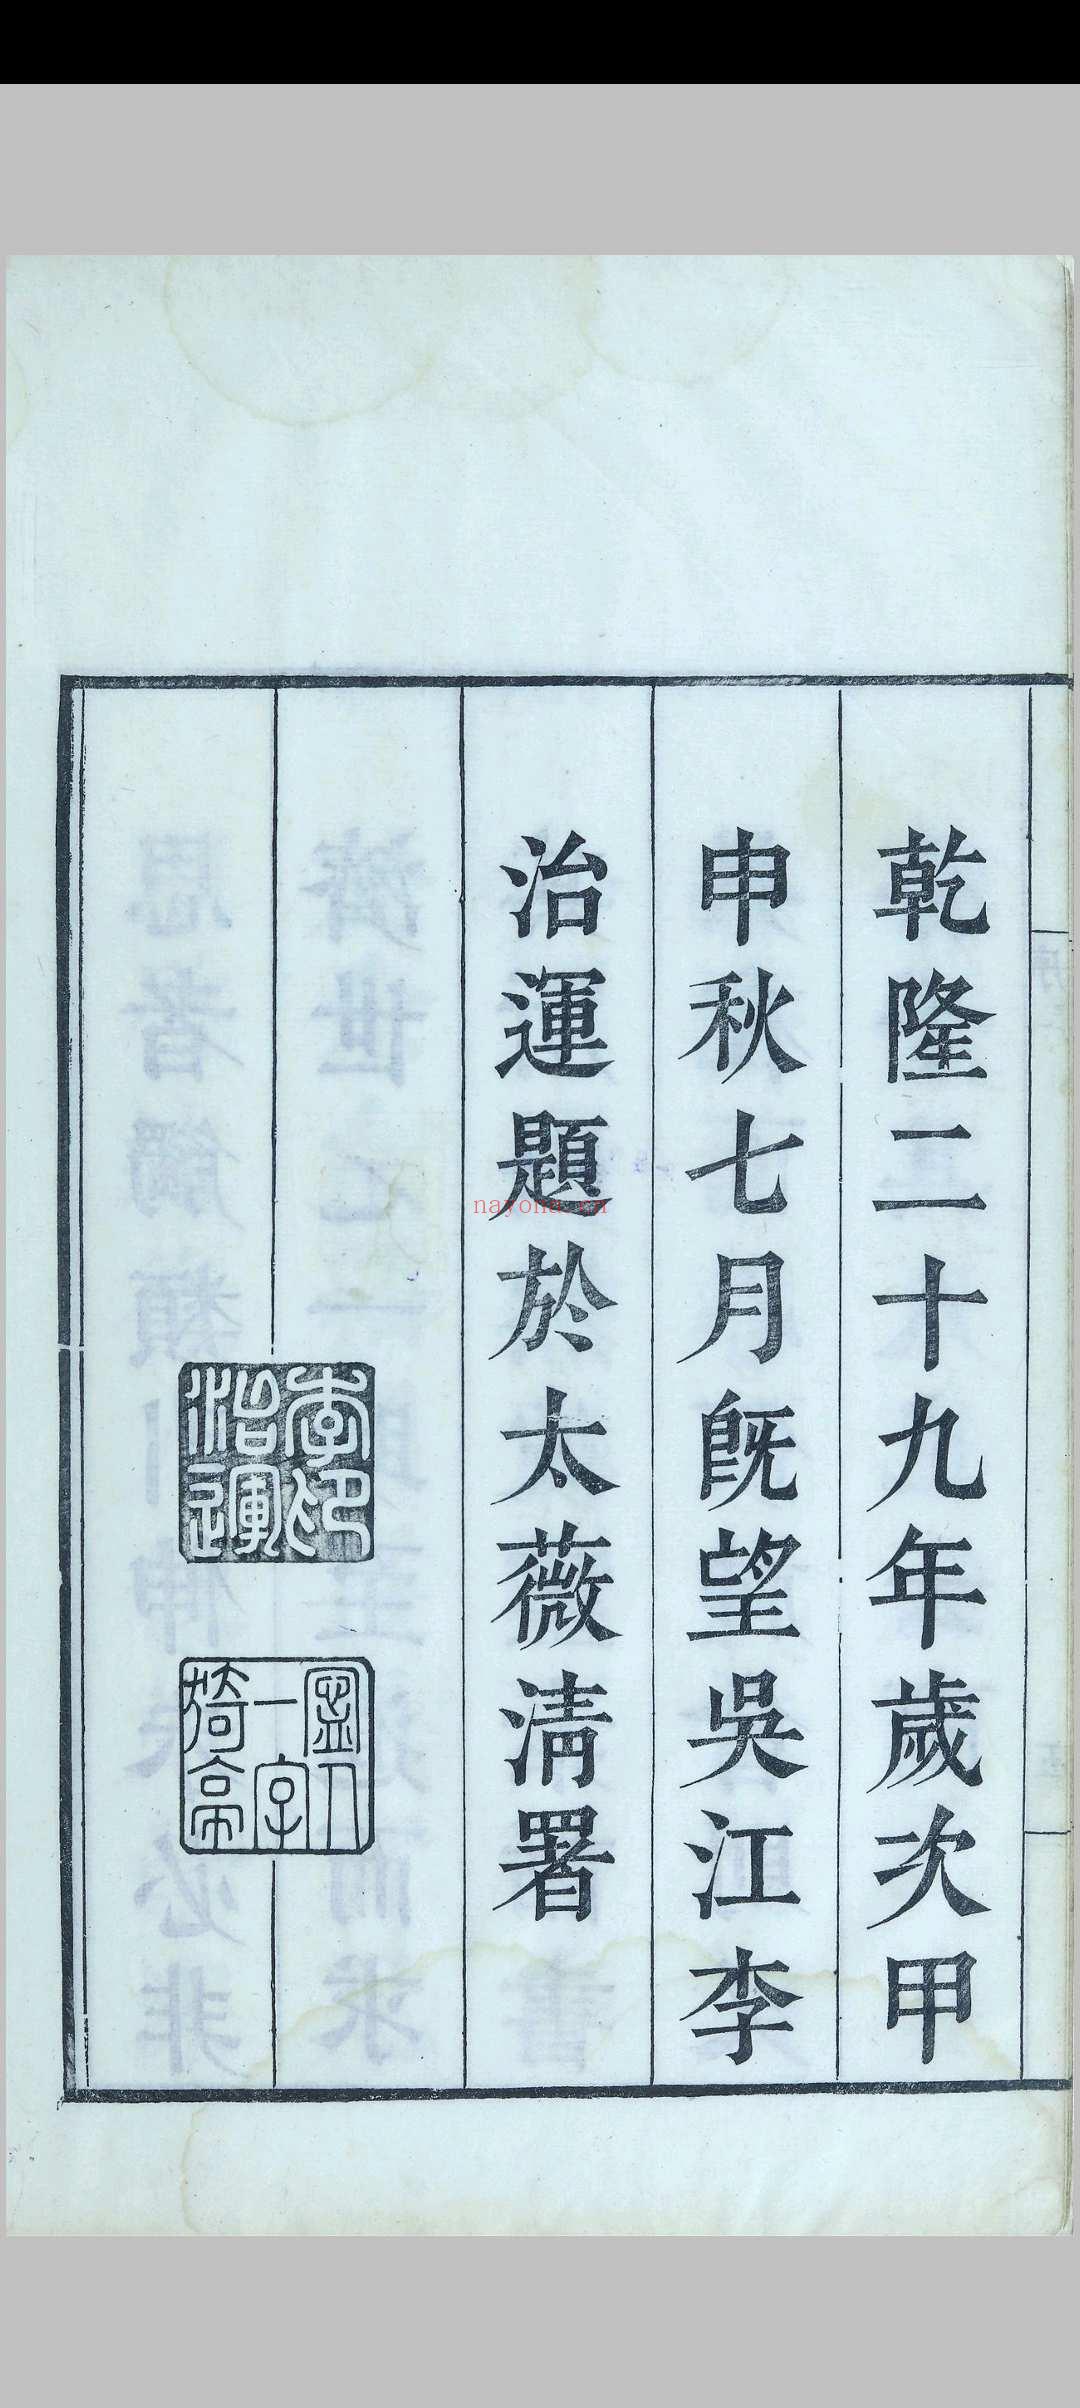 乾隆二十九年歲次甲
申秋七月既望吳江李
治運題於太薇清署
李印
治運
一字
漪亭
nayona.cn